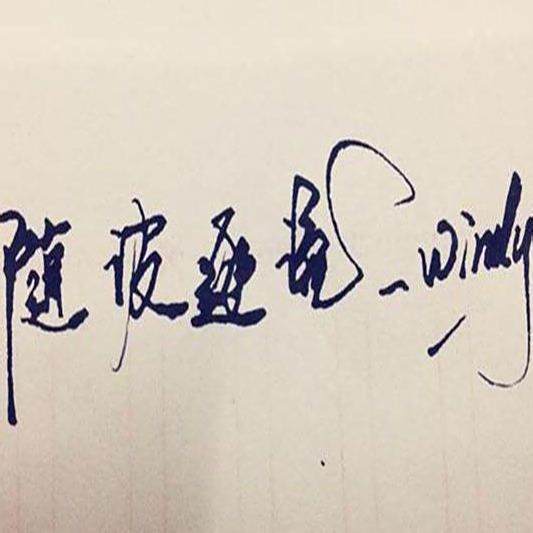 随波逐流_windy